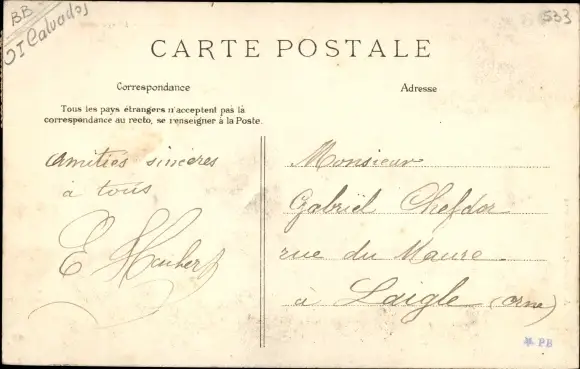 BB
OI Calvados
533
CARTE POSTALE
Correspondance
Adresse
Tous les pays étrangers n'acceptent pas la
correspondance au recto, se renseigner à la Poste.
Amitiés sincères
à tous
E
Monsieur
Gabriel Chefdor
rue du Maure
à Laigle (Orne)
* PB